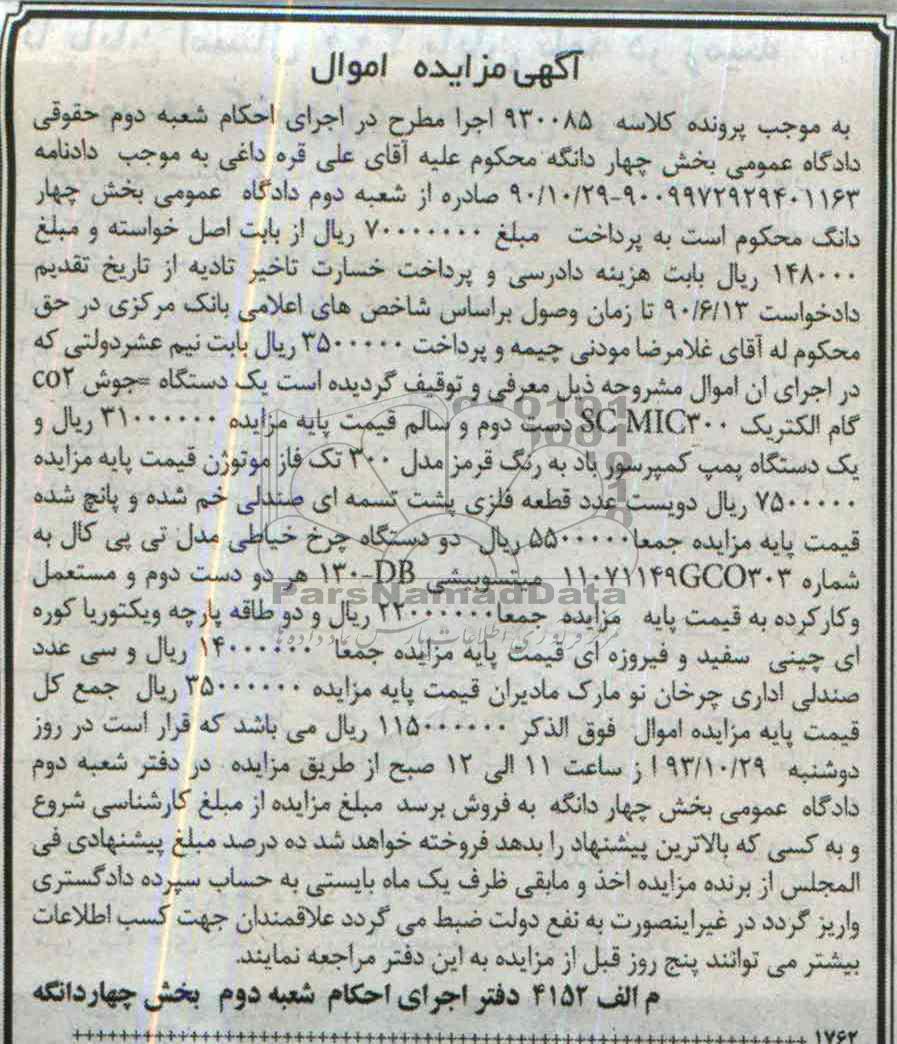 آگهی مزایده اموال
به موجب پرونده کلاسه ۹۳۰۰۸۵ اجرا مطرح در اجرای احکام شعبه دوم حقوقی
دادگاه عمومی بخش چهار دانگه محکوم علیه آقای علی قره داغی به موجب دادنامه
۹۰۰۹۹۷۲۹۲۹۴۰۱۱۶۳-۹۰/۱۰/۲۹ صادره از شعبه دوم دادگاه عمومی بخش چهار
دانگ محکوم است به پرداخت مبلغ ۷۰۰۰۰۰۰۰ ریال از بابت اصل خواسته و مبلغ
۱۴۸۰۰۰۰ ریال بابت هزینه دادرسی و پرداخت خسارت تاخیر تادیه از تاریخ تقدیم
دادخواست ۹۰/۶/۱۳ تا زمان وصول براساس شاخص های اعلامی بانک مرکزی در حق
محکوم له آقای غلامرضا مودنی چیمه و پرداخت ۳۵۰۰۰۰۰ ریال بابت نیم عشردولتی که
در اجرای ان اموال مشروحه ذیل معرفی و توقیف گردیده است یک دستگاه =جوش co۲
گام الکتریک SC MIC۳۰۰ دست دوم و سالم قیمت پایه مزایده ۳۱۰۰۰۰۰۰ ریال و
یک دستگاه پمپ کمپرسور باد به رنگ قرمز مدل ۳۰۰ تک فاز موتوژن قیمت پایه مزایده
۷۵۰۰۰۰۰ ریال دویست عدد قطعه فلزی پشت تسمه ای صندلی خم شده و پانچ شده
قیمت پایه مزایده جمعا ۵۵۰۰۰۰۰ ریال دو دستگاه چرخ خیاطی مدل تی پی کال به
شماره ۱۱۰۷۱۱۴۹GCO۳۰۳ میتسوبیشی DB-۱۳۰ هر دو دست دوم و مستعمل
وکارکرده به قیمت پایه مزایده جمعا ۲۲۰۰۰۰۰۰ ریال و دو طاقه پارچه ویکتوریا کوره
ای چینی سفید و فیروزه ای قیمت پایه مزایده جمعا ۱۴۰۰۰۰۰۰ ریال و سی عدد
صندلی اداری چرخان نو مارک مادیران قیمت پایه مزایده ۳۵۰۰۰۰۰۰ ریال جمع کل
قیمت پایه مزایده اموال فوق الذکر ۱۱۵۰۰۰۰۰۰ ریال می باشد که قرار است در روز
دوشنبه ۹۳/۱۰/۲۹ ا ز ساعت ۱۱ الی ۱۲ صبح از طریق مزایده در دفتر شعبه دوم
دادگاه عمومی بخش چهار دانگه به فروش برسد مبلغ مزایده از مبلغ کارشناسی شروع
و به کسی که بالاترین پیشنهاد را بدهد فروخته خواهد شد ده درصد مبلغ پیشنهادی فی
المجلس از برنده مزایده اخذ و مابقی ظرف یک ماه بایستی به حساب سپرده دادگستری
واریز گردد در غیراینصورت به نفع دولت ضبط می گردد علاقمندان جهت کسب اطلاعات
بیشتر می توانند پنج روز قبل از مزایده به این دفتر مراجعه نمایند.
م الف ۴۱۵۲ دفتر اجرای احکام شعبه دوم بخش چهاردانگه
۱۷۶۲
ParsNamadData